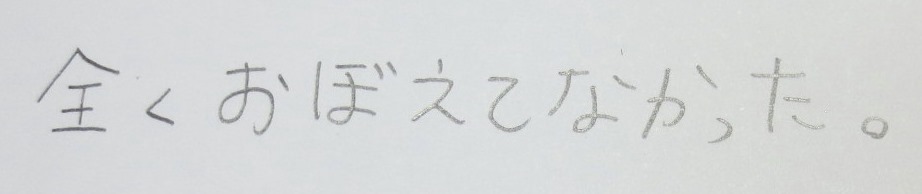 全くおぼえてなかった。